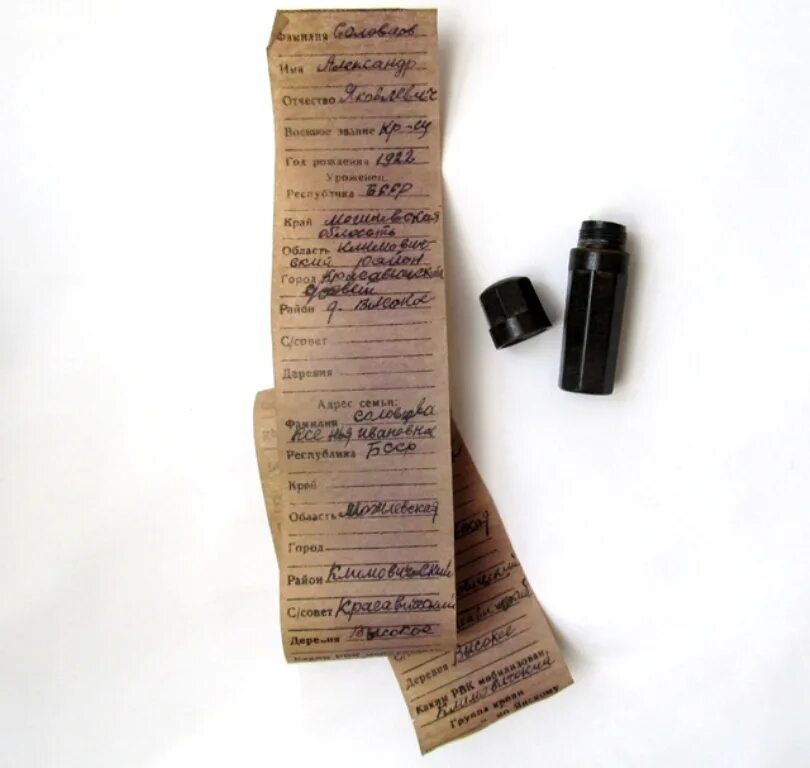 Фамилия Соловьев
Имя Александр
Отчество Яковлевич
Военное звание кр-ец
Год рождения 1922
Уроженец:
Республика БССР
Край Могилевская
область
Область Климович-
ский район
Город Красавический
с/совет
Район д. Высокое
С/совет
Деревня
Адрес семьи:
Фамилия Соловьева
Ксенья Ивановна
Республика БССР
Край
Область Могилевская
Город
Район Климовический
С/совет Красавический
Деревня Высокое
Деревня Высокое
Каким РВК мобилизован
Климовический
Группа крови
по Янскому